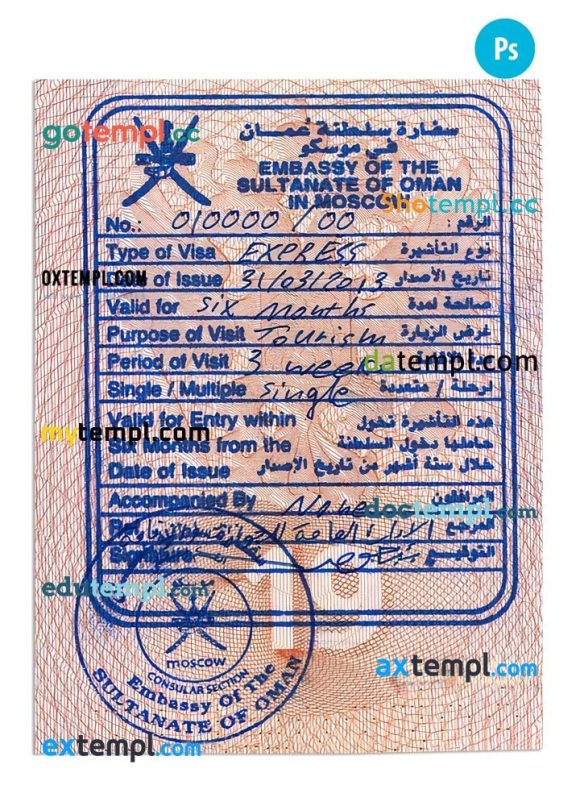 Ps
gotempl.cc
سفارة سلطنة عمان
في موسكو
EMBASSY OF THE
SULTANATE OF OMAN
IN MOSCOW
Shotempl.cc
No.: 010000 / 00 الرقم :
Type of Visa EXPRESS نوع التأشيرة
OXTEMPL.COM
of Issue 31/03/2013 تاريخ الأصدار
Valid for Six Months صالحة لمدة
Purpose of Visit Tourism غرض الزيارة
Period of Visit 3 week
datempl.com
Single / Multiple Single لرحلة / متعددة
Valid for Entry within هذه التأشيرة تخول
mytempl.com
Six Months from the حاملها دخول السلطنة
Date of Issue خلال ستة أشهر من تاريخ الإصدار
Accompanied By None المرافقون
doctempl.com
المرجع
التوقيع
edutempl.com
MOSCOW
CONSULAR SECTION
Embassy Of The
SULTANATE OF OMAN
19
axtempl.com
extempl.com